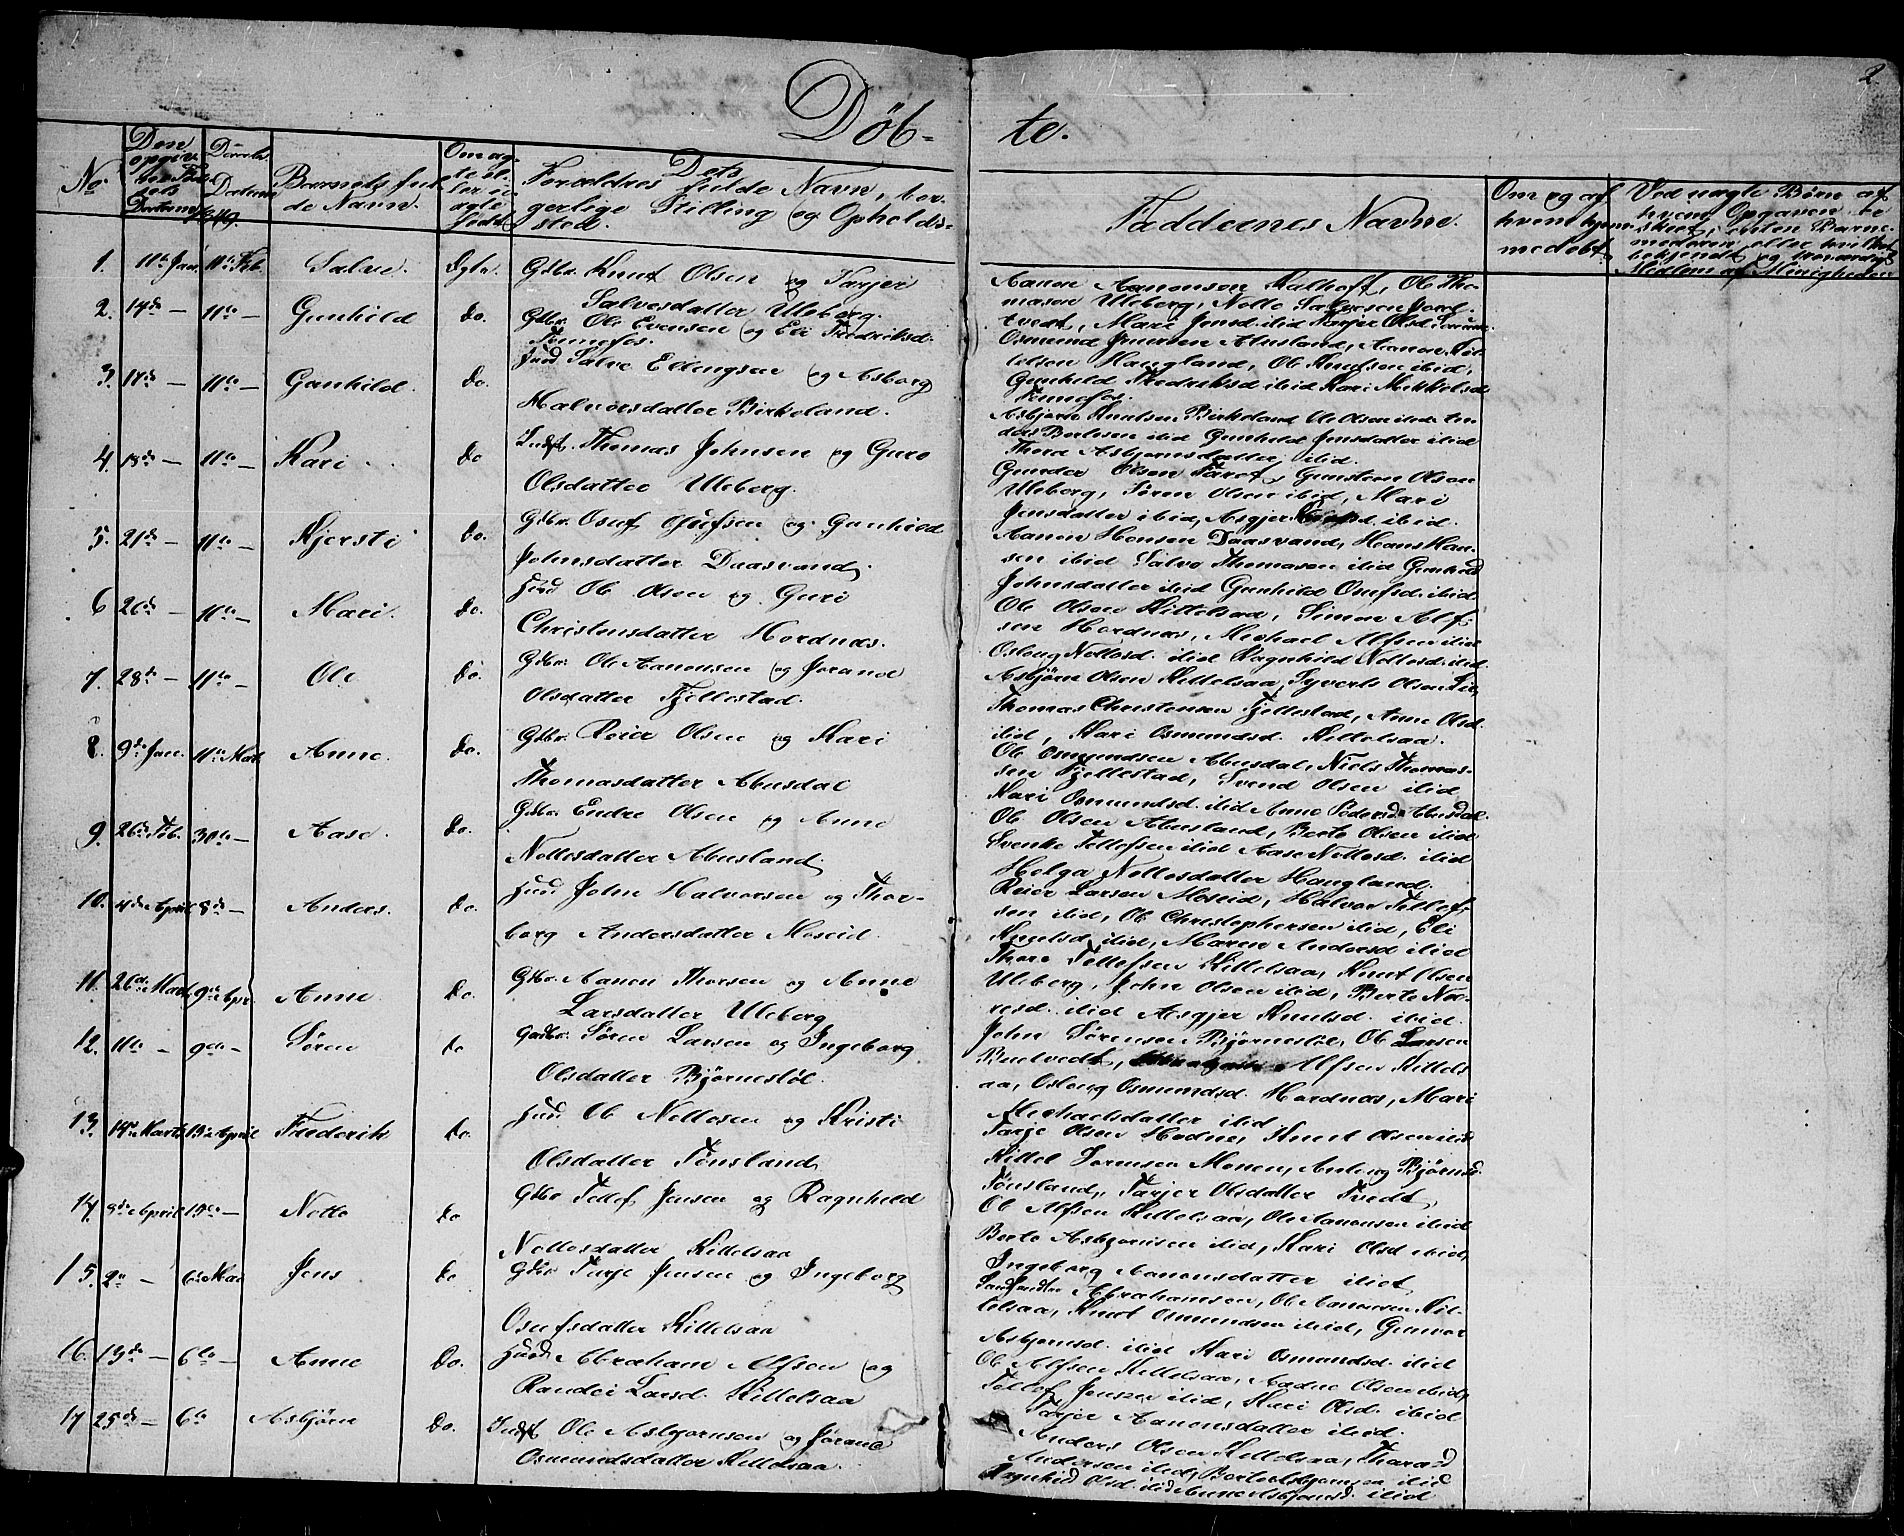 2.
Døb- te.
No.
Den opgiv. Datum
Daabs Datum
Barnets fulde Navn.
Om ægte el. uægte født
Dets Forældres fulde Navn, borgerlige Stilling og Opholdssted.
Faddernes Navne.
Om og af hvem hjemmedøbt
Ved uægte Børn af hvem Opgaven er skeet, enten Barnemoderen eller
1. 11te Jan 11te Feb. Salve. Ægte. Gdbr. Knut Olsen og Tarjer
Salvesdatter Uleborg.
Aanon Aanonsen Kalhoft, Ole Tho-
masen Uleborg, Notto Salvesen
tvedt, Mari Jensd. ibid Tarjer Olsd
2. 17de — 11te — Gunhild do. Gdbr. Ole Evensen og Eli Fredriksd.
Tennefos.
Osmund Jensen Abusland, Aanon Tel-
lefsen Haugland, Ole Knutsen ibid,
Gunhild Fredriksd ibid Kari Mikkelsd
Tennefos.
3. 17de — 11te — Gunhild. do. Huusd Salve Ellingsen og Asborg
Halvorsdatter Birkeland.
Asbjørn Knutsen Birkeland Ole Olsen ibid
ibid Gunhild Jensdatter ibid
Thora Asbjørnsdatter ibid.
4. 18de — 11te — Kari do Indst. Thomas Johnsen og Guro
Olsdatter Uleberg.
Gunder Olsen Gunsten Olsen
Uleborg, Søren Olsen ibid, Mari
Jensdatter ibid, Asgjer ibid.
5. 21de — 11te — Kjersti do. Gdbr. Osuf Osufsen og Gunhild
Johnsdatter Daasvand.
Aanon Hansen Daasvand, Hans Han-
sen ibid Salve Thomasen ibid Gunhild
Johnsdatter ibid Gunhild Osufsd. ibid.
6 26de — 11te — Mari. do. Huusd Ole Olsen og Guri
Christensdatter Hordnæs.
Ole Olsen Kittelsaa, Simon Alf-
sen Hordnæs, Michael Alfsen ibid
Oslaug Nottosd. ibid Ragnhild Nottosd. ibid
7. 28de — 11te — Ole do. Gdbr. Ole Aanonsen og Jorand
Olsdatter Fjellestad.
Asbjørn Olsen Kittelsaa, Syvert Olsen
Thomas Christensen Fjellestad, Anne Olsd.
ibid, Kari Osmundsd. Kittelsaa.
8. 9de Jan. 11te Mart. Anne. do. Gdbr. Reier Olsen og Kari
Thomasdatter Abusdal
Ole Osmundsen Abusdal, Niels Thomas-
sen Fjellestad, Svend Olsen ibid
Kari Osmundsd. ibid Anne Abusdal
9. 26de Feb. 30te — Aase. do. Gdbr. Endre Olsen og Anne
Nottosdatter Abusland.
Ole Olsen Abusland, Berte Olsen ibid
Svenke Tellefsen ibid Aase Nottosd. ibid
Helga Nottosdatter Haugland.
10. 4de April 8de — Anders. do. Huusd John Halvorsen og Thor-
borg Andersdatter Moseid.
Reier Larsen Moseid, Halvor Tellef-
sen ibid, Ole Christophersen ibid, Eli
Knutsd. ibid, Maren Andersd ibid
11. 26de Mart. 9de Apr. Anne do. Gdbr. Aanon Thorsen og Anne
Larsdatter Uleborg
Thore Tellefsen Kittelsaa, Knut Olsen
Uleborg, John Olsen ibid, Berte
ibid Asgjer Knutsd. ibid.
12. 11te — 9de — Søren do Gdbr. Søren Larsen og Ingeborg
Olsdatter Bjørnestøl.
John Sørensen Bjørnestøl, Ole Larsen
Alfsen Kittels-
aa, Oslaug Osmundsd. Hordnæs, Mari
Michaelsdatter ibid
13. 14de Marts 13de April Frederik do. Huusd. Ole Nottosen og Kristi
Olsdatter Fønsland
Tarje Olsen Hodne, Knut Olsen ibid
Kittel Sørensen Monen, Bjørnsd.
Fønsland, Tarjer Olsdatter Tvedt
14. 8de April 13de — Notto do Gdbr Tellef Jensen og Ragnhild
Nottosdatter Kittelsaa
Ole Alfsen Kittelsaa, Ole Aanonsen ibid
Berte Asbjørnsen ibid, Kari Olsd ibid,
Ingeborg Aanonsdatter ibid
15. 2de — 6te Mai Jens do Gdbr Tarje Jensen og Ingeborg
Osufsdatter Kittelsaa
Abrahamsen, Ole Aanonsen Kit-
telsaa, Knut Osmundsen ibid, Gunvor
Asbjørnsd. ibid Kari Osmundsd. ibid
16. 13de — 6te — Anne do. Huusd Abraham Alfsen og
Randei Larsd. Kittelsaa
Ole Alfsen Kittelsaa, Aadne Olsen ibid,
Tellef Jensen ibid, Kari Olsd. ibid
Tarjer Aanonsdatter ibid.
17 25de — 6te Asbjørn do. Indst Ole Asbjørnsen og Jørand
Osmundsdatter Kittelsaa.
Anders Olsen Kittelsaa, Tharald
Andersen ibid, Berte Asbjørnsen ibid
Ragnhild Olsd. ibid Anne Asbjørnsd. ibid